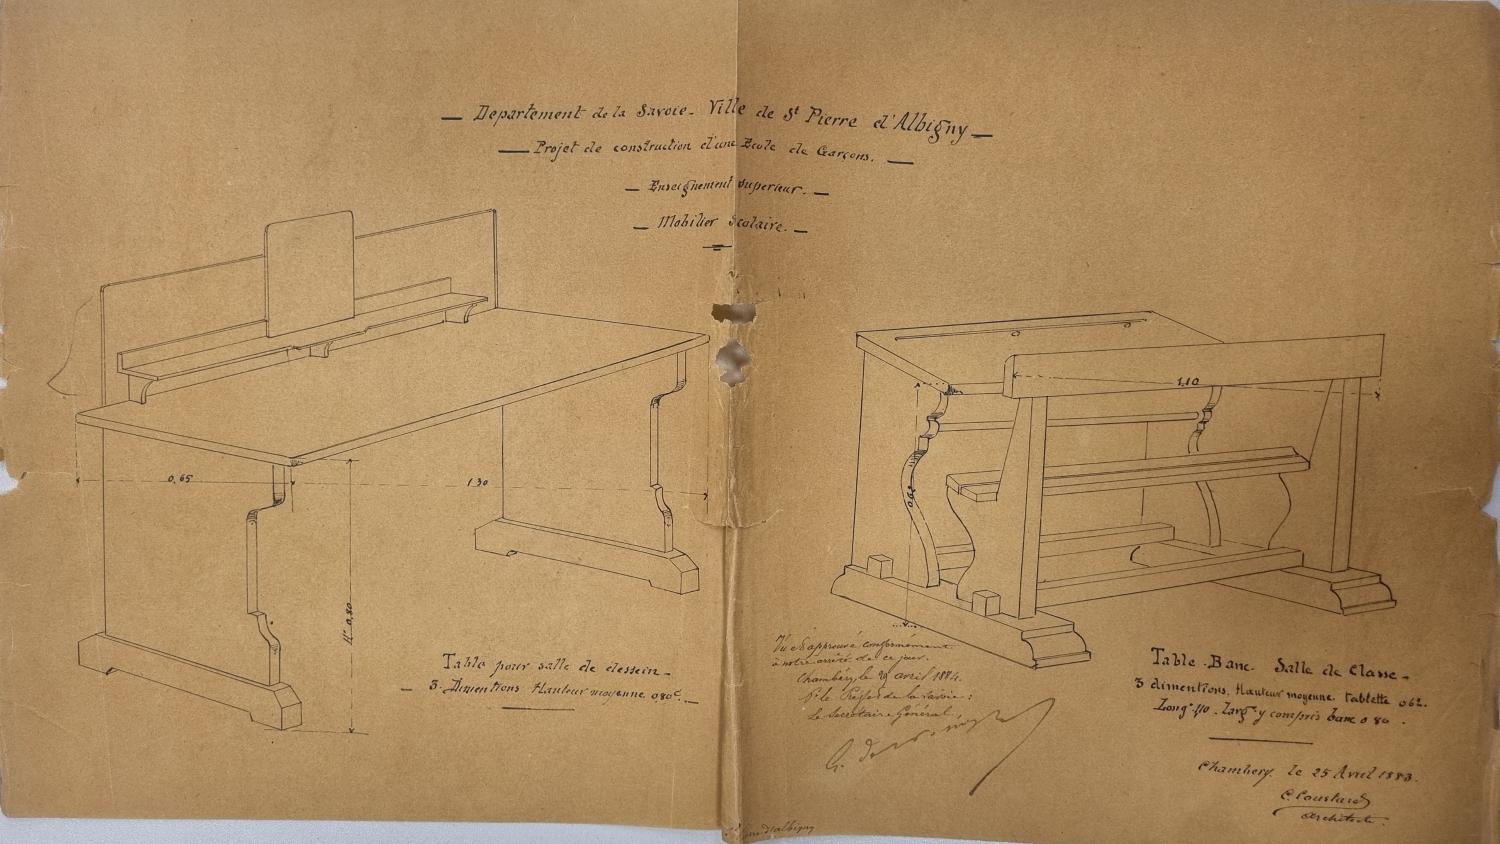 Departement de la Savoie - Ville de St Pierre d'Albigny
Projet de construction d'une Ecole de Garçons.
Enseignement Superieur.
Mobilier Scolaire.
1,10
0,65
1 30
0,62
Hr 0,80
Table pour salle de dessein
3 Dimentions Hauteur moyenne 0,80c.
Vu et approuvé conformément
à notre arrêté de ce jour.
Chambéry, le avril 1884.
P. le Préfet de la Savoie:
Le Secrétaire Général,
Table-Banc Salle de Classe
3 dimentions. Hauteur moyenne tablette 062.
Longr 1,10. Largr y compris banc 0 80.
Chambery, le 25 Avril 1883.
Architecte.
d'albigny